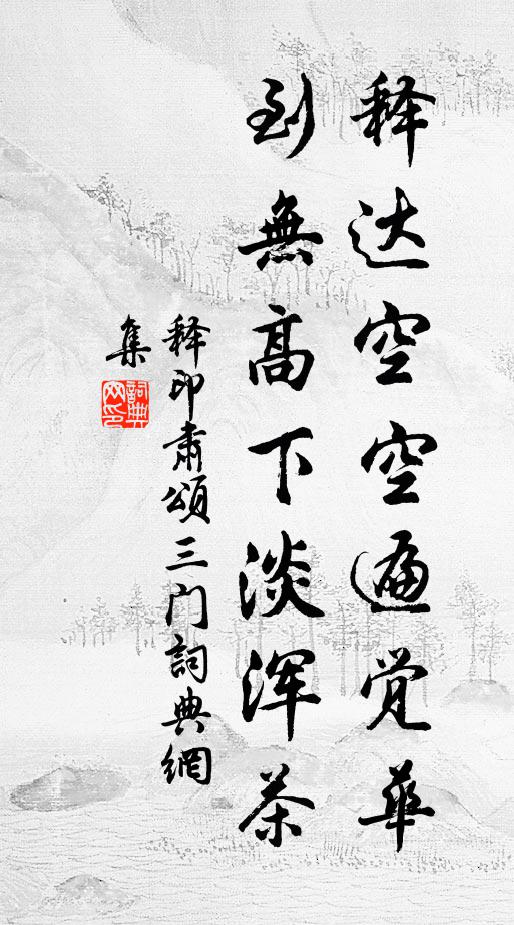 释达空空遍觉華
到無高下淡浑茶
释印肃頌三门詞典網
集
詞典网印